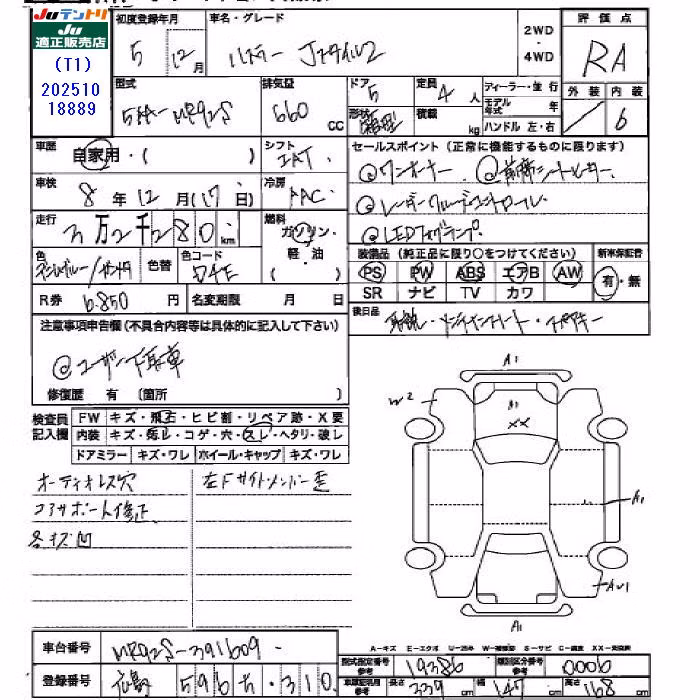 Juテントリ
JU
適正販売店
(T1)
202510
18889
初度登録年月
5 年 12 月
車名・グレード
ハスラー Jスタイル2
2WD
・
4WD
評価点
RA
外装 内装
6
型式
5AA-MR92S
排気量
660 CC
ドア
5
形状
箱型
定員
4 人
積載
kg
ディーラー・並行
モデル年式 年
ハンドル 左・右
車歴
自家用・( )
シフト
IAT
車検
8 年 12 月(17 日)
冷房
AAC
セールスポイント(正常に機能するものに限ります)
@ワンオーナー @前席シートヒーター
@レーダークルーズコントロール
@LEDフォグランプ
走行
3万2千280 km
燃料
ガソリン・
軽・油
( )
装備品(純正品に限り○をつけてください)
新車保証書
PS PW ABS エアB AW
SR ナビ TV カワ
有・無
色
色替
色コード
R券 6.850 円
名変期限 月 日
後日品
注意事項申告欄(不具合内容等は具体的に記入して下さい)
@ユーザー下取車
修復歴 有 〔箇所 〕
検査員
記入欄
FW キズ・飛石・ヒビ割・リペア跡・X要
内装 キズ・汚レ・コゲ・穴・スレ・ヘタリ・破レ
ドアミラー キズ・ワレ ホイール・キャップ キズ・ワレ
オーディオレス穴
コアサポート修正
各キズ凹
左Fサイドメンバー歪
A1
W2
A1
XX
A1
AU1
A1
A-キズ E-エクボ U-凹み W-補修跡 S-サビ C-腐食 XX-交換済
車台番号 MR92S-391609
登録番号 広島 596 ち・310
型式指定番号 参考 19386
類別区分番号 参考 0006
車庫証明用 参考
長さ 339 幅 147 高さ 168 cm